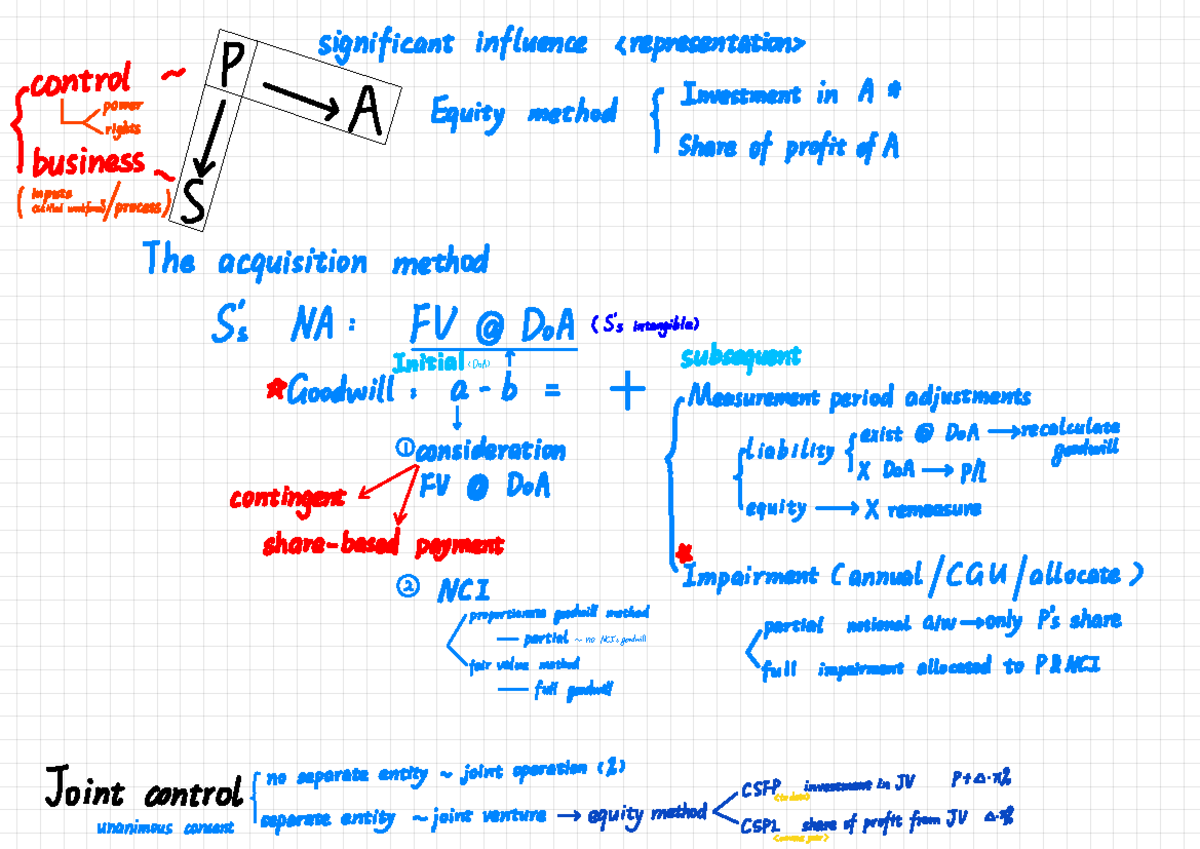 significant influence <representation>
P
A
S
control ~
power
rights
business ~
(inputs / process)
Equity method
Investment in A *
Share of profit of A
The acquisition method
S's NA: FV @ DoA (S's intangible)
Initial (DoA)
*Goodwill: a - b = +
① consideration
FV @ DoA
contingent
share-based payment
② NCI
proportionate goodwill method
— partial ~ no NCI's goodwill
fair value method
— full goodwill
subsequent
Measurement period adjustments
liability
exist @ DoA → recalculate goodwill
X DoA → P/L
equity → X remeasure
*
Impairment (annual/CGU/allocate)
partial notional g/w → only P's share
full impairment allocated to P & NCI
Joint control
unanimous consent
no separate entity ~ joint operation (%)
separate entity ~ joint venture → equity method
CSFP investment in JV P+Δ·x%
CSPL share of profit from JV Δ·x%